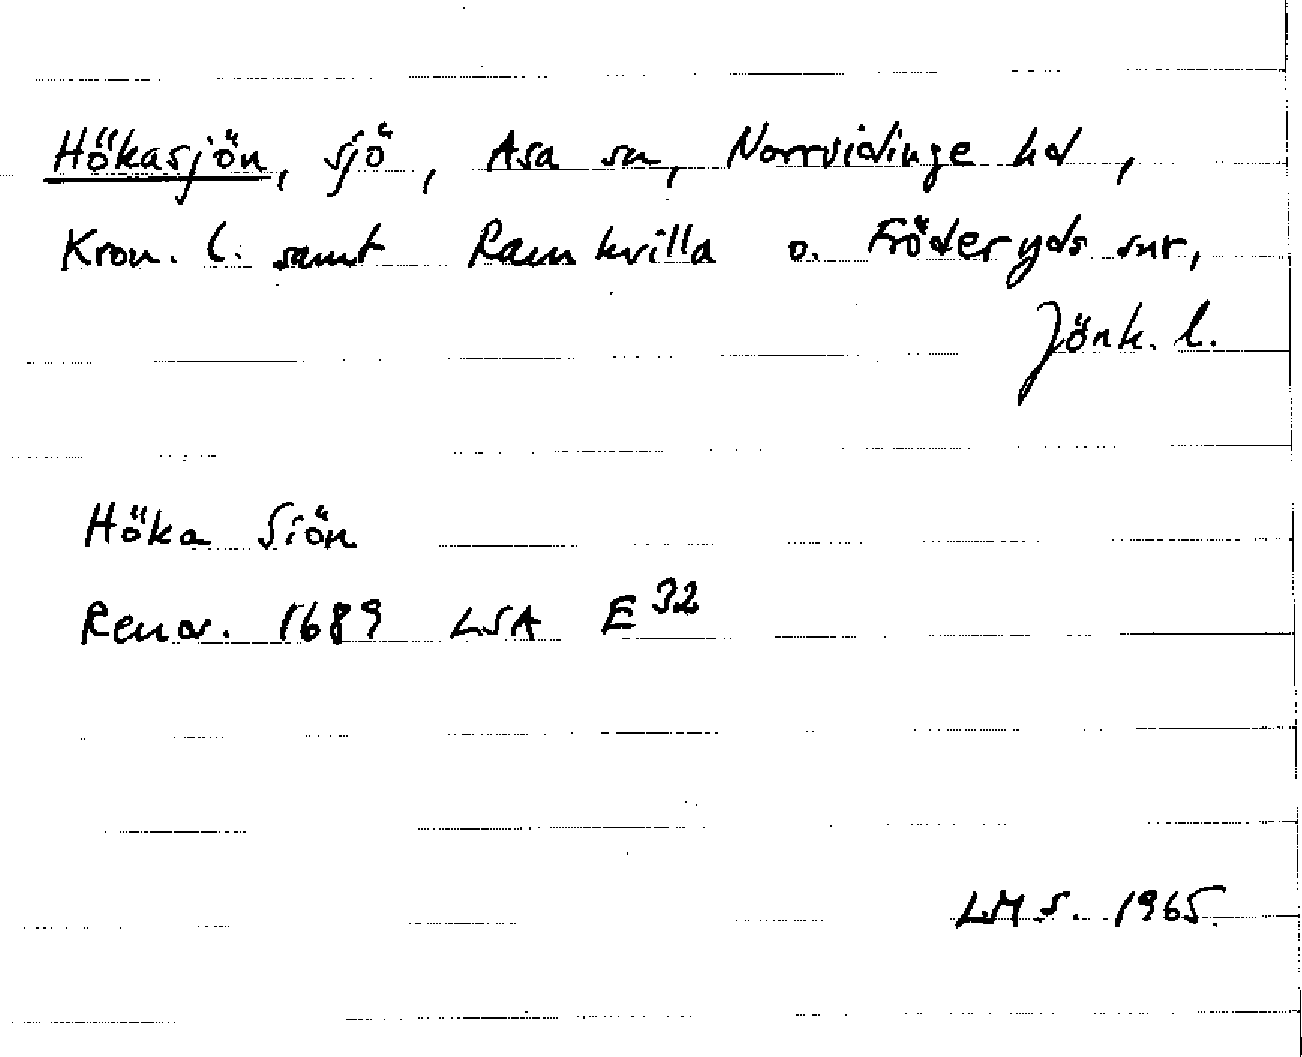 Hökasjön, sjö, Asa sn, Norrvidinge hd,
Kron. l. samt Ramkvilla o. Fröderyds snr,
Jönk. l.
Höka Siön
Renov. 1689 LSA E 32
LMS. 1965.